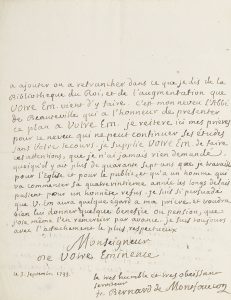 a ajouter ou a retrancher dans ce que je dis de la
Bibliotheque du Roi, et de l'augmentation que
Votre Em. vient d'y faire. c'est mon neveu l'Abbé
de Beauteville qui a l'honneur de presenter
ce plan a Votre Em. je reitere ici mes prieres
pour ce neveu qui ne peut continuer ses études
sans Votre secours. je supplie Votre Em. de faire
attention, que je n'ai jamais rien demandé,
quoiqu'il y ait plus de quarante sept ans que je travaille
pour l'eglise et pour le public, et qu'a un homme qui
va commencer sa quatrevintieme année les longs delais
passent pour un honnete refus. je suis si persuadé
que V. Em aura quelque egard a ma priere, et voudra
bien lui donner quelque benefice ou pension, que
j'ose même l'en remercier par avance. je suis toujours
avec l'attachement le plus respectueux
Monseigneur
De Votre Eminence
Le tres humble et tres obeissant
serviteur
fr. Bernard de Montfaucon